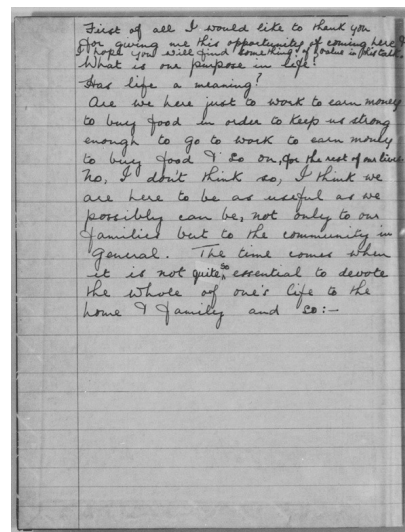 First of all I would like to thank you
for giving me this opportunity of coming here &
I hope you will find something of value in this talk.
What is one purpose in life?
Has life a meaning?
Are we here just to work to earn money
to buy food in order to keep us strong
enough to go to work to earn money
to buy food & so on, for the rest of our lives
No, I don't think so, I think we
are here to be as useful as we
possibly can be, not only to our
families but to the community in
general. The time comes when
it is not quite so essential to devote
the whole of one's life to the
home & family and so:-